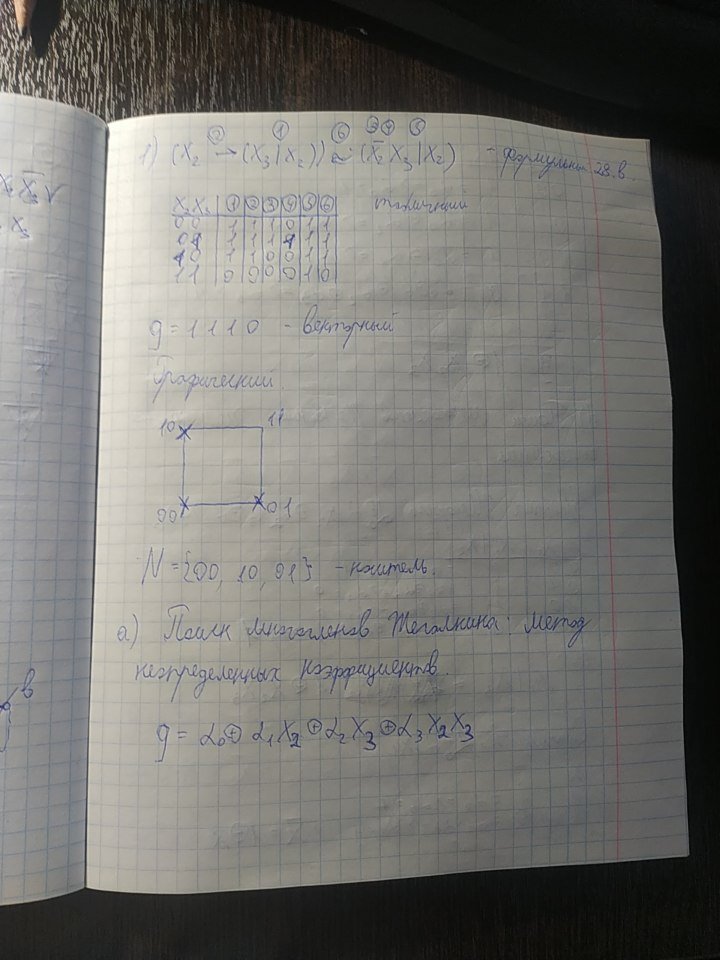 ② ① ⑥ ③ ④ ⑤
1) (X₂ → (X₃ | X₂)) ~ (X̄₂ X₃ | X₂) - формульный 28.в.
X₂ X₃ | ① | ② | ③ | ④ | ⑤ | ⑥ табличный
0 0 | 1 | 1 | 1 | 0 | 1 | 1
0 1 | 1 | 1 | 1 | 1 | 1 | 1
1 0 | 1 | 1 | 0 | 0 | 1 | 1
1 1 | 0 | 0 | 0 | 0 | 1 | 0
g = 1110 - векторный
Графический.
10 11
00 01
N = {00, 10, 01} - носитель.
а) Поиск многочленов Жегалкина: метод
неопределенных коэффициентов.
g = α₀ ⊕ α₁X₂ ⊕ α₂X₃ ⊕ α₃X₂X₃
X̄₃ V
X₃
в